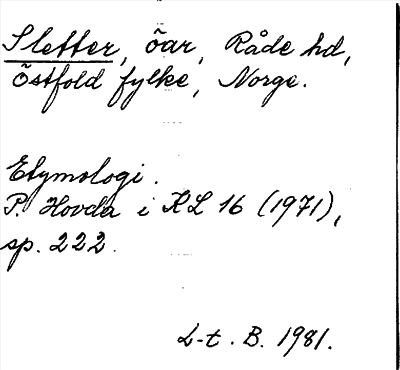 Sletter, öar, Råde hd,
Östfold fylke, Norge.
Etymologi.
P. Hovda i KL 16 (1971),
sp. 222.
L-t. B. 1981.